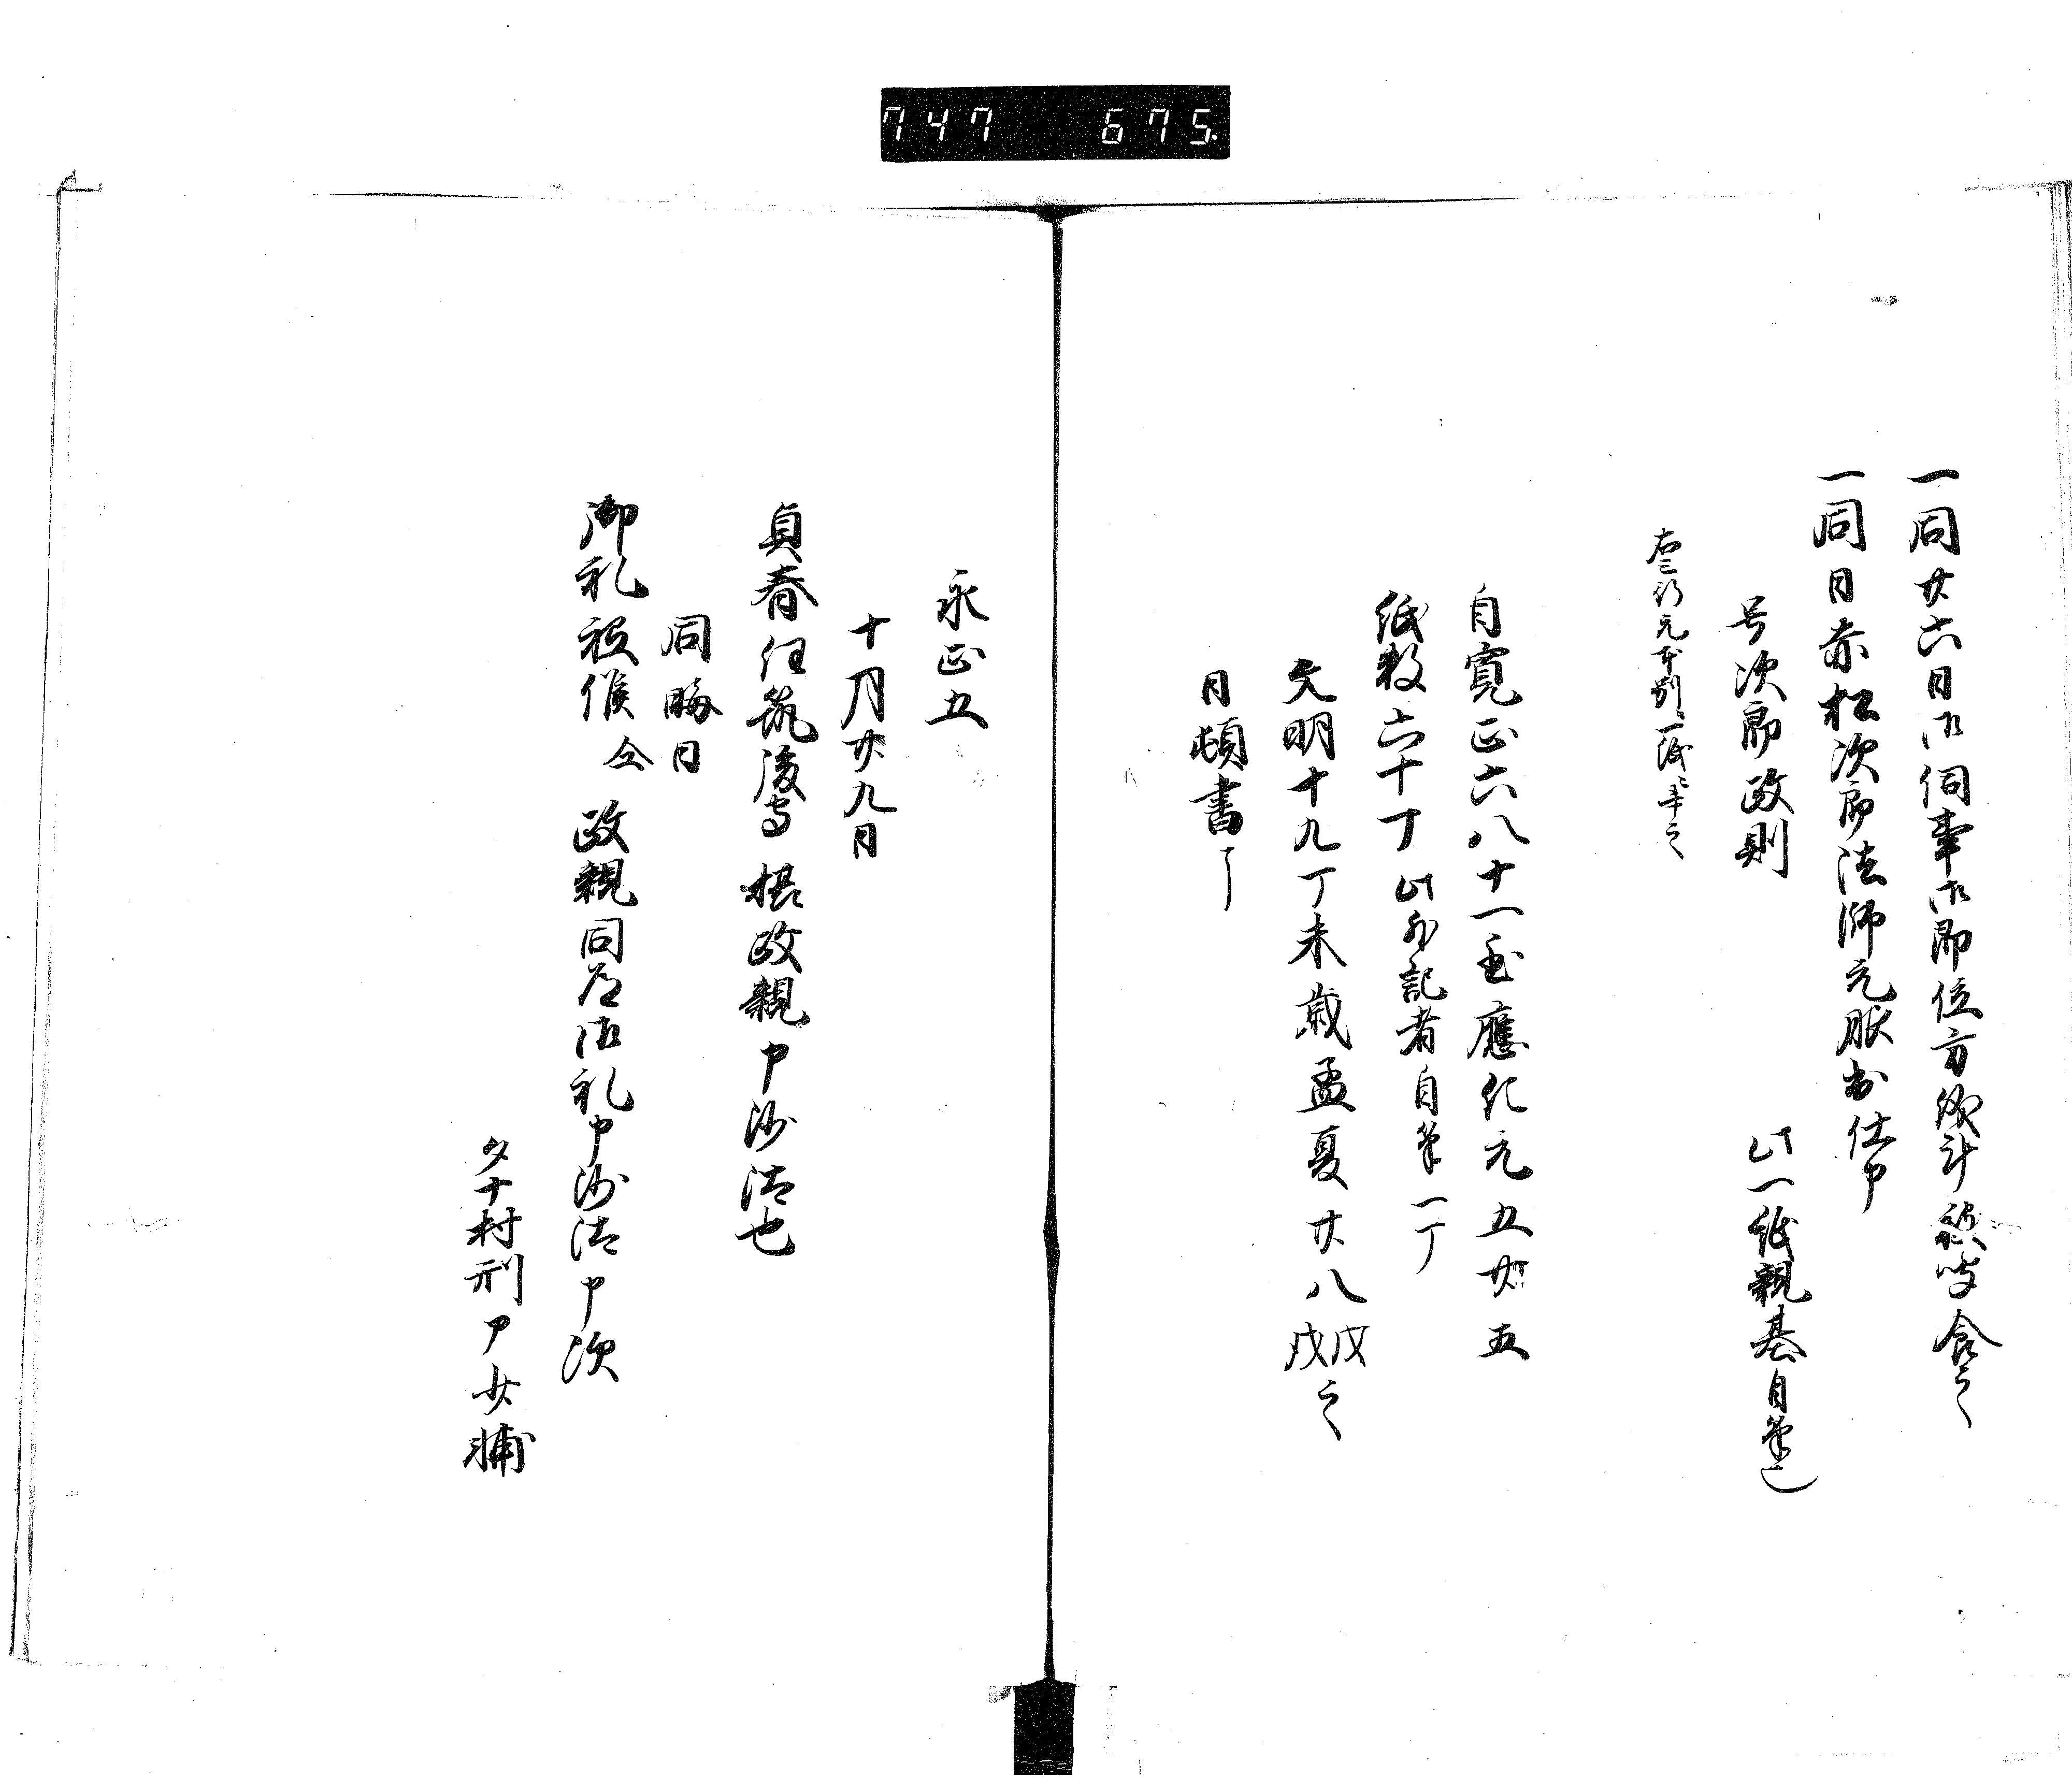 747 675.
一同廿六日御伺事御即位方儀計被仰含云々
一同日赤松次郎法師元服出仕申
号次郎政則 此一紙親基自筆也
右三行元本別一紙ニ在之
自寛正六八十一至應仁元五廿五
紙数六十丁 此外記者自筆一丁
文明十九丁未歳孟夏廿八戊戌云々
日頓書了
永正五
十月廿九日
貞春任筑後守 摂政親申沙汰也
同晦日
御礼被候 政親同道御礼申沙汰申次
田村刑ア少輔